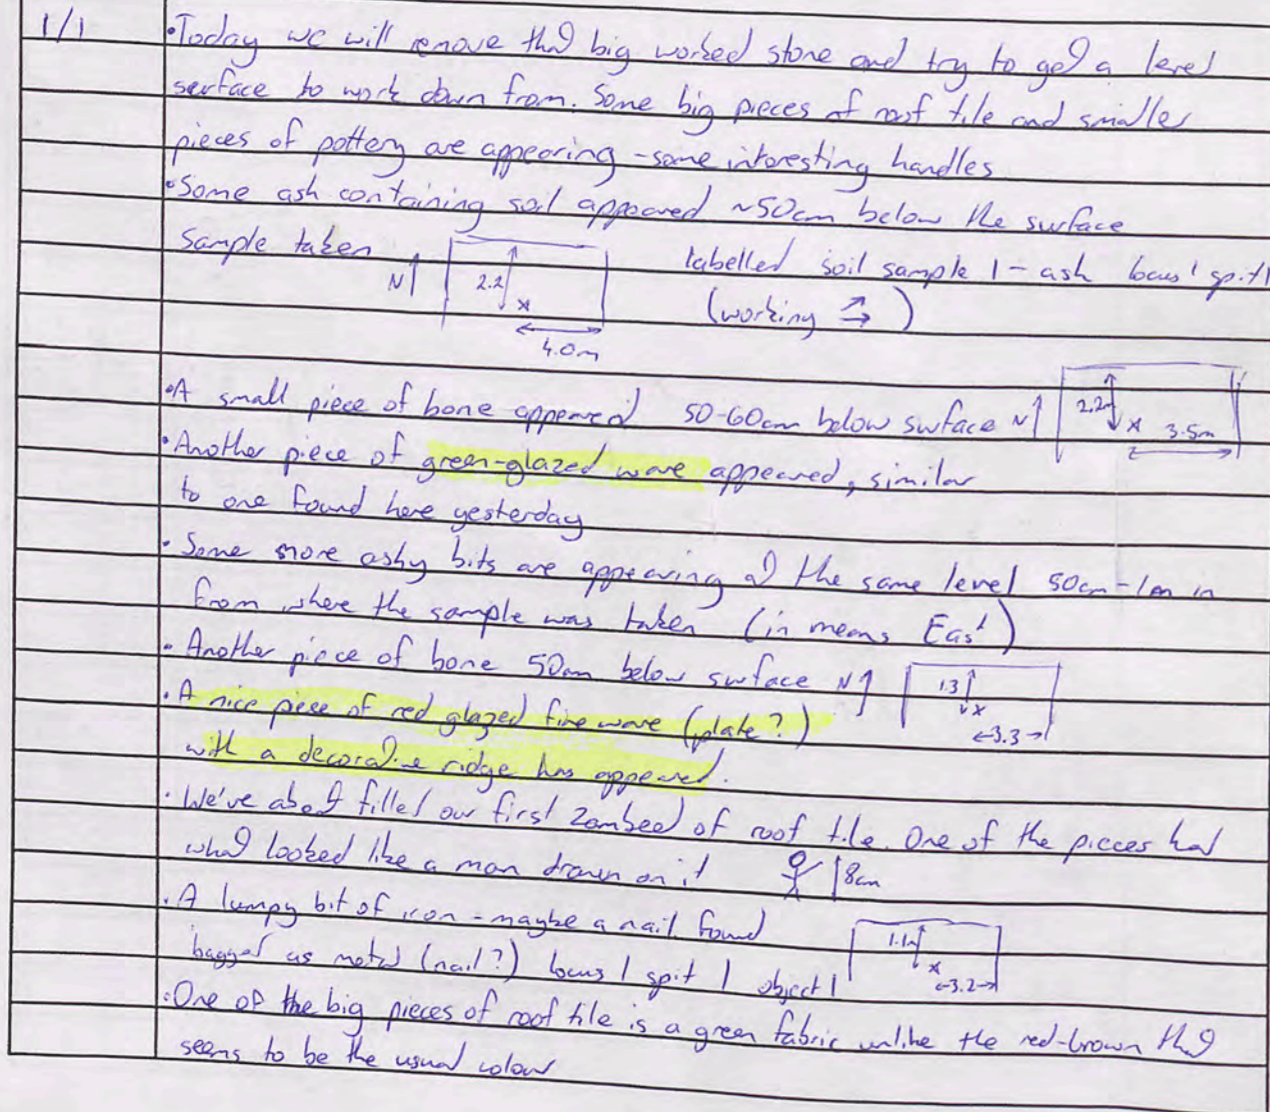 1/1
•Today we will remove that big worked stone and try to get a level
surface to work down from. Some big pieces of roof tile and smaller
pieces of pottery are appearing - some interesting handles
•Some ash containing soil appeared ~50cm below the surface
Sample taken N 2.2 x 4.0m labelled soil sample 1 - ash locus 1 spit 1
(working →)
•A small piece of bone appeared 50-60cm below surface N 2.2m x 3.5m
•Another piece of green-glazed ware appeared, similar
to one found here yesterday
•Some more ashy bits are appearing at the same level 50cm-1m in
from where the sample was taken (in means East)
•Another piece of bone 50cm below surface N 1.3 x 3.3
•A nice piese of red glazed fine ware (plate?)
with a decorative ridge has appeared.
•We've about filled our first zambeel of roof tile. One of the pieces had
what looked like a man drawn on it 8cm
•A lumpy bit of iron - maybe a nail found
bagged as metal (nail?) locus 1 spit 1 object 1 1.1m x 3.2
•One of the big pieces of roof tile is a green fabric unlike the red-brown that
seems to be the usual colour